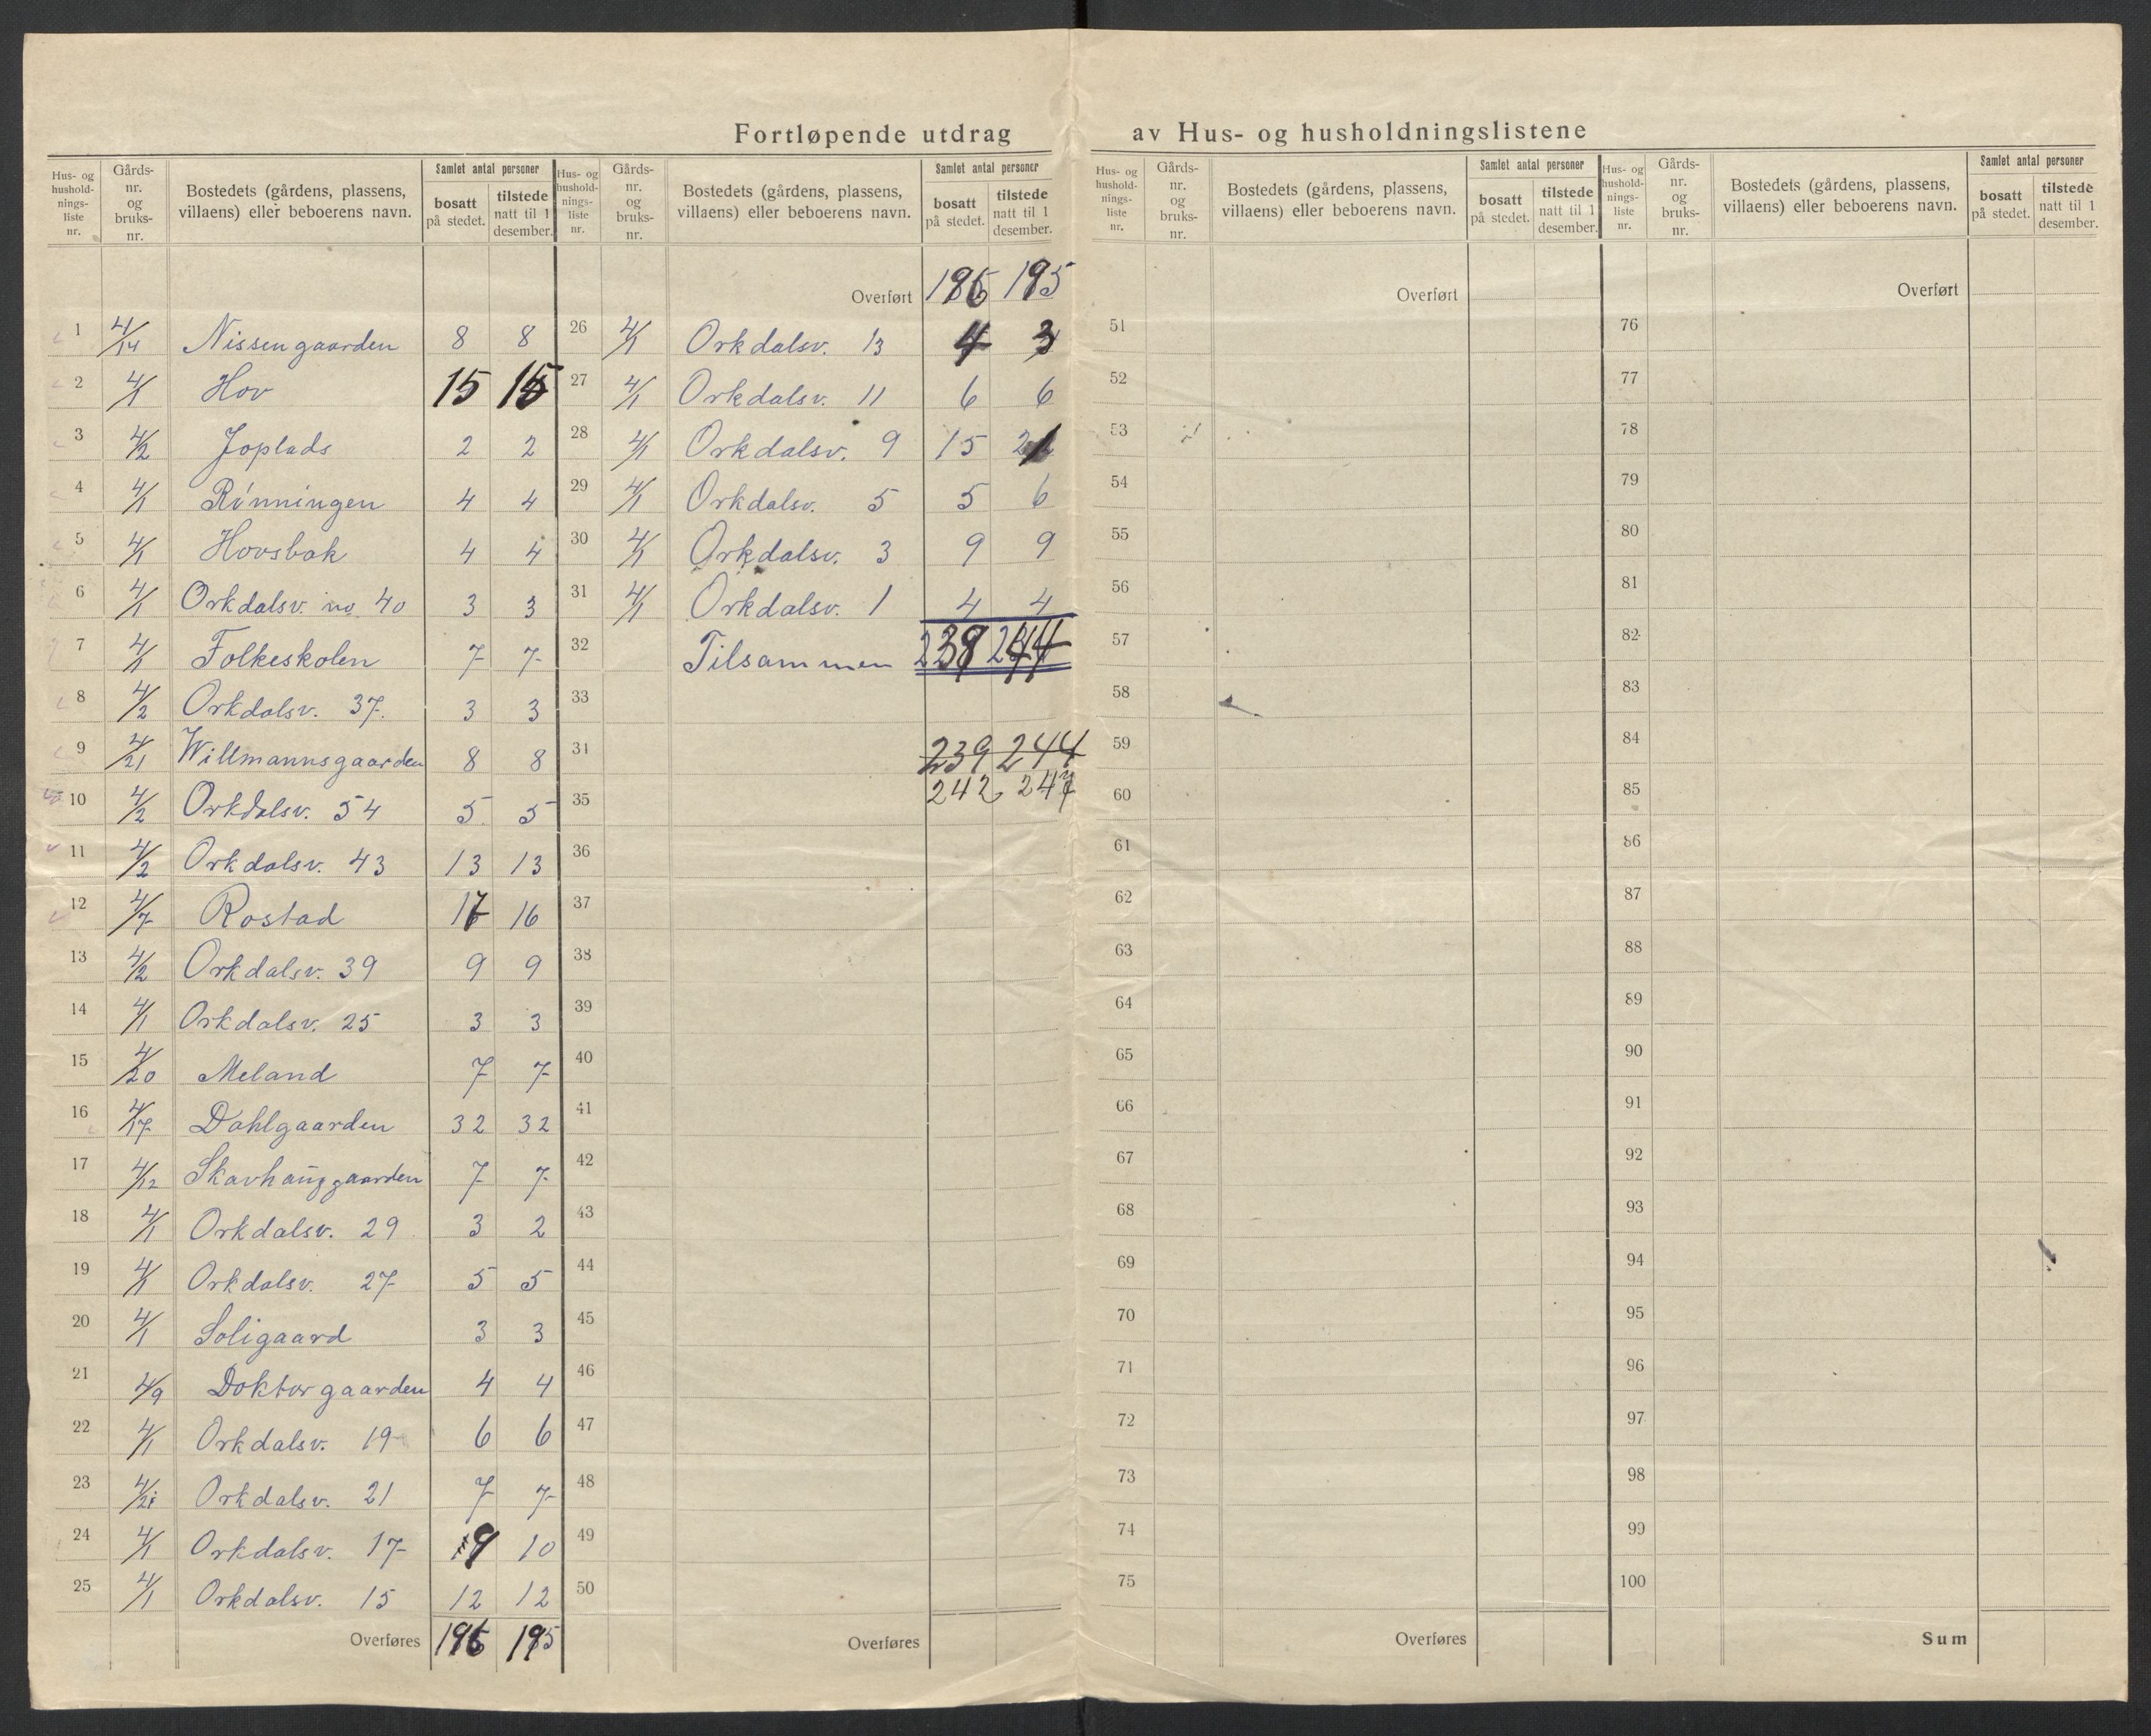 Fortløpende utdrag av Hus- og husholdningslistene
Hus- og hushold-nings-liste nr. | Gårds-nr. og bruks-nr. | Bostedets (gårdens, plassens, villaens) eller beboerens navn. | Samlet antal personer | bosatt på stedet. | tilstede natt til 1 desember.
Hus- og hushold-nings-liste nr. | Gårds-nr. og bruks-nr. | Bostedets (gårdens, plassens, villaens) eller beboerens navn. | Samlet antal personer | bosatt på stedet. | tilstede natt til 1 desember.
1 4/14 Nissengaarden 8 8
2 4/1 Hov 15 15
3 4/2 Joplads 2 2
4 4/1 Rønningen 4 4
5 4/1 Hovsbak 4 4
6 4/1 Orkdalsv. no 40 3 3
7 4/1 Folkeskolen 7 7
8 4/2 Orkdalsv. 37. 3 3
9 4/21 Willmannsgaarden 8 8
10 4/2 Orkdalsv. 54 5 5
11 4/2 Orkdalsv. 43 13 13
12 4/7 Rostad 17 16
13 4/2 Orkdalsv. 39 9 9
14 4/1 Orkdalsv. 25 3 3
15 4/20 Meland 7 7
16 4/17 Dahlgaarden 32 32
17 4/12 Skavhauggaarden 7 7
18 4/1 Orkdalsv. 29 3 2
19 4/1 Orkdalsv. 27 5 5
20 4/1 Soligaard 3 3
21 4/9 Doktorgaarden 4 4
22 4/1 Orkdalsv. 19 6 6
23 4/21 Orkdalsv. 21 7 7
24 4/1 Orkdalsv. 17 9 10
25 4/1 Orkdalsv. 15 12 12
Overføres 196 195
Overført 196 195
26 4/1 Orkdalsv. 13 4 3
27 4/1 Orkdalsv. 11 6 6
28 4/1 Orkdalsv. 9 15 21
29 4/1 Orkdalsv. 5 5 6
30 4/1 Orkdalsv. 3 9 9
31 4/1 Orkdalsv. 1 4 4
32 Tilsammen 239 244
33
34 239 244
35 242 247
36
37
38
39
40
41
42
43
44
45
46
47
48
49
50
Overføres
Hus- og hushold-nings-liste nr. | Gårds-nr. og bruks-nr. | Bostedets (gårdens, plassens, villaens) eller beboerens navn. | Samlet antal personer | bosatt på stedet. | tilstede natt til 1 desember.
Overført
51
52
53
54
55
56
57
58
59
60
61
62
63
64
65
66
67
68
69
70
71
72
73
74
75
Overføres
Hus- og hushold-nings-liste nr. | Gårds-nr. og bruks-nr. | Bostedets (gårdens, plassens, villaens) eller beboerens navn. | Samlet antal personer | bosatt på stedet. | tilstede natt til 1 desember.
Overført
76
77
78
79
80
81
82
83
84
85
86
87
88
89
90
91
92
93
94
95
96
97
98
99
100
Sum